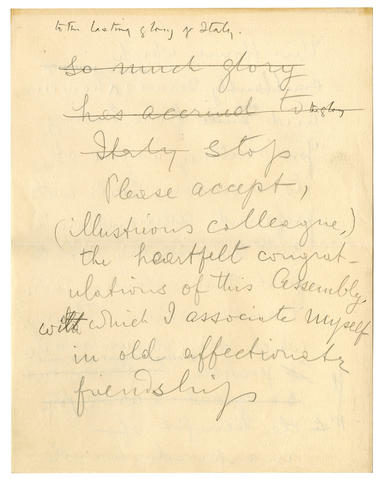 to the lasting glory of Italy.
So much glory
has accrued to the glory
Italy stop
Please accept,
(illustrious colleague,)
the heartfelt congrat-
ulations of this Assembly,
with which I associate myself
in old affectionate
friendship